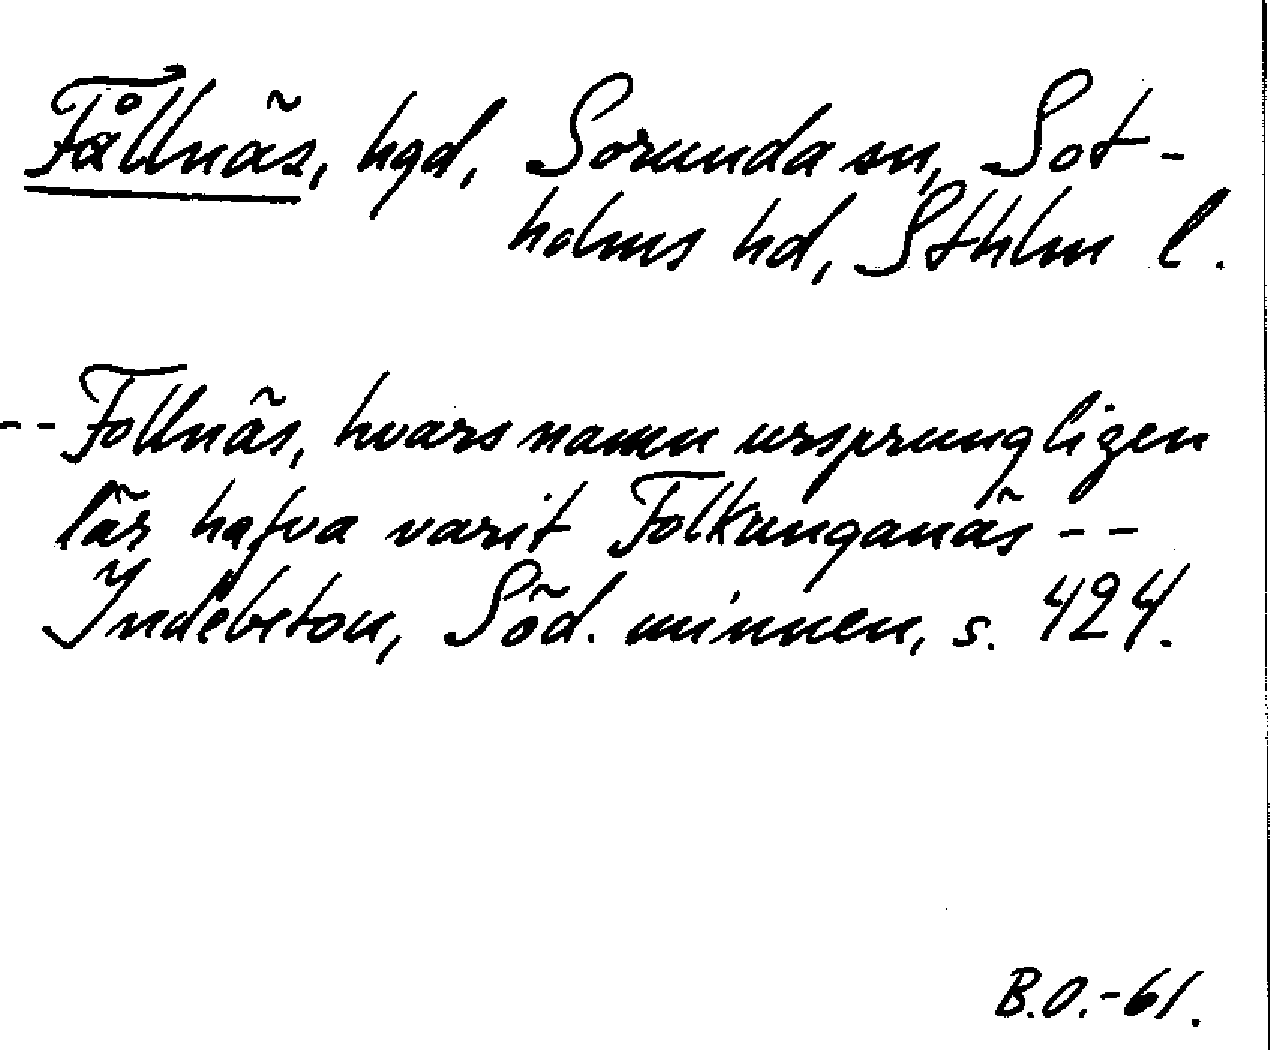 Fållnäs, hgd, Sorunda sn, Sot-
holms hd, Sthlm l.
-- Follnäs, hvars namn ursprungligen
lär hafva varit Folkunganäs --
Indebetou, Söd. minnen, s. 424.
B.O.-61.